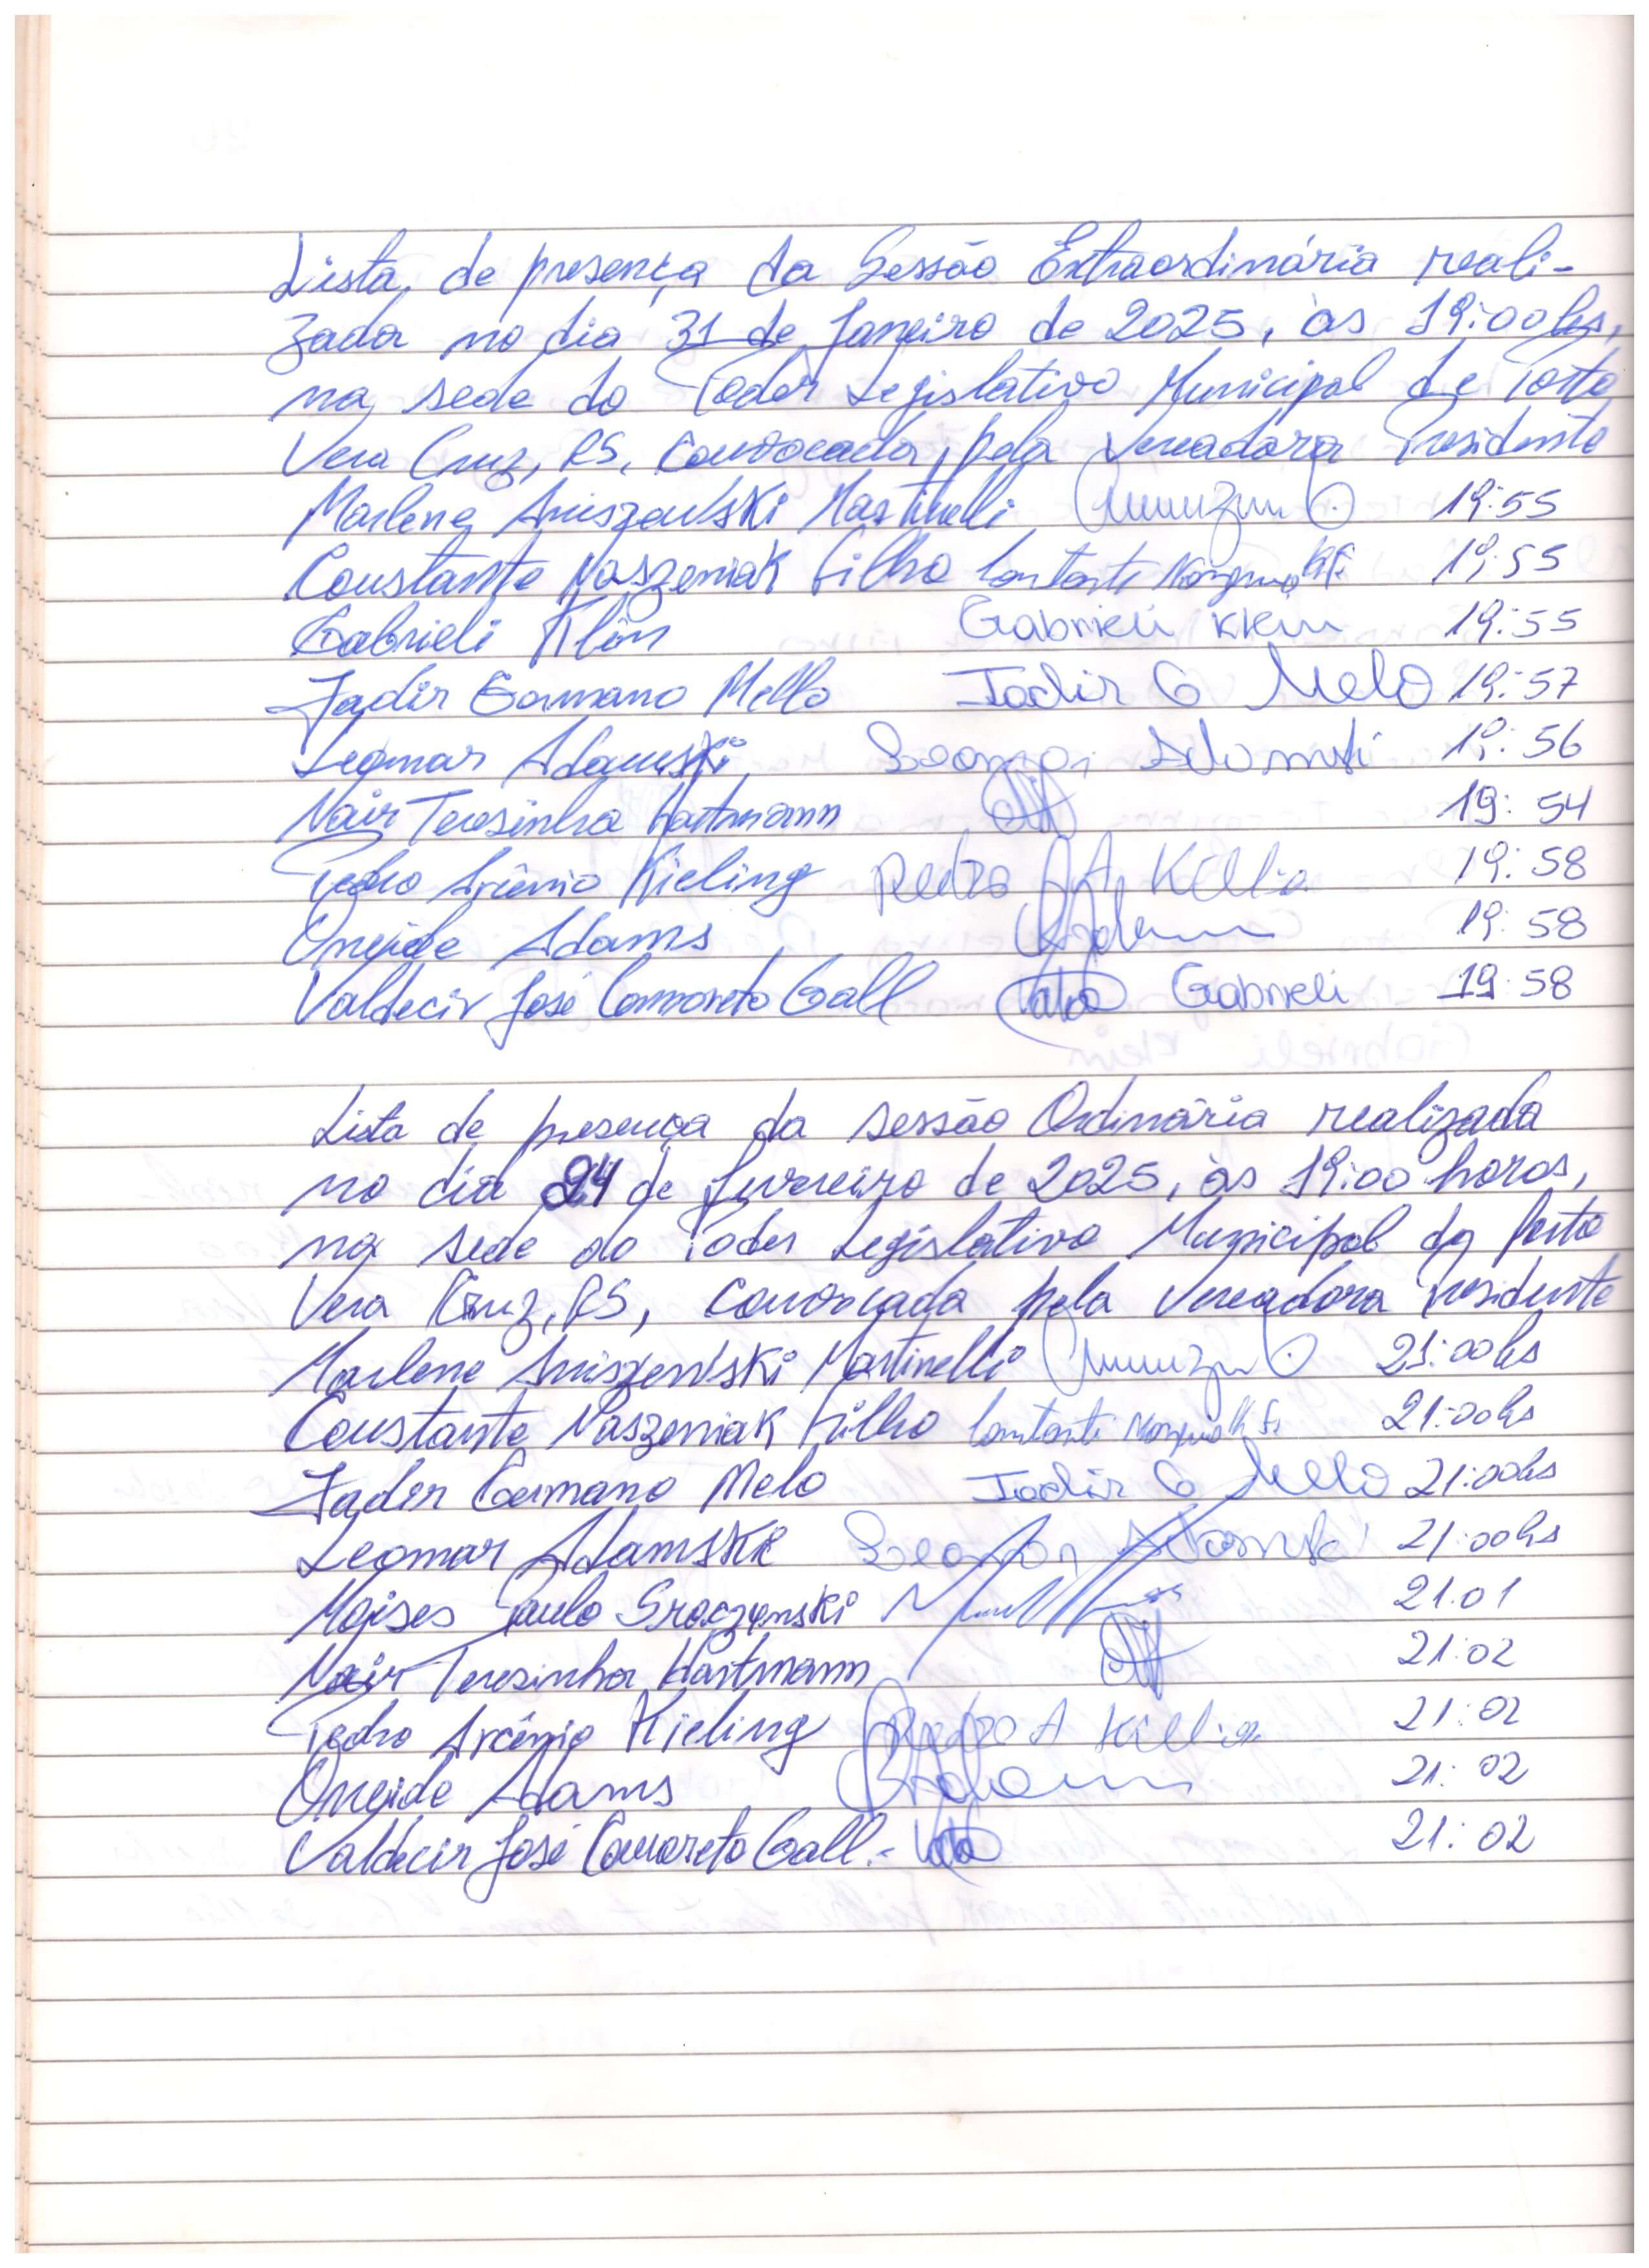 Lista de presença da Sessão Extraordinária reali-
zada no dia 31 de Janeiro de 2025, às 19:00hs,
na sede do Poder Legislativo Municipal de Porto
Vera Cruz, RS, Convocada pela Vereadora Presidente
Marlene Aniszewski Martinelli 19:55
Constante Naszeniak Filho 19:55
Gabrieli Klein Gabrieli Klein 19:55
Jadir Germano Mello Jadir G Melo 19:57
Leomar Adamski Leomar Adamski 19:56
Nair Teresinha Hartmann 19:54
Pedro Arcênio Kieling Pedro A 19:58
Oneide Adams 19:58
Valdecir José Camareto Gall Gabrieli 19:58
Lista de presença da sessão Ordinária realizada
no dia 24 de fevereiro de 2025, às 19:00 horas,
na sede do Poder Legislativo Municipal de Porto
Vera Cruz, RS, convocada pela Vereadora Presidente
Marlene Aniszewski Martinelli 21:00hs
Constante Naszeniak Filho 21:00hs
Jader Germano Melo Jadir G Mello 21:00hs
Leomar Adamski Leomar Adamski 21:00hs
Moises Paulo Sroczynski 21.01
Nair Teresinha Hartmann 21:02
Pedro Arcênio Kieling Pedro A 21:02
Oneide Adams 21:02
Valdecir José Camareto Gall.- 21:02